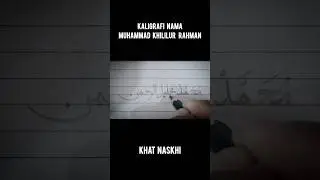 KALIGRAFI NAMA
MUHAMMAD KHILILUR RAHMAN
KHAT NASKHI